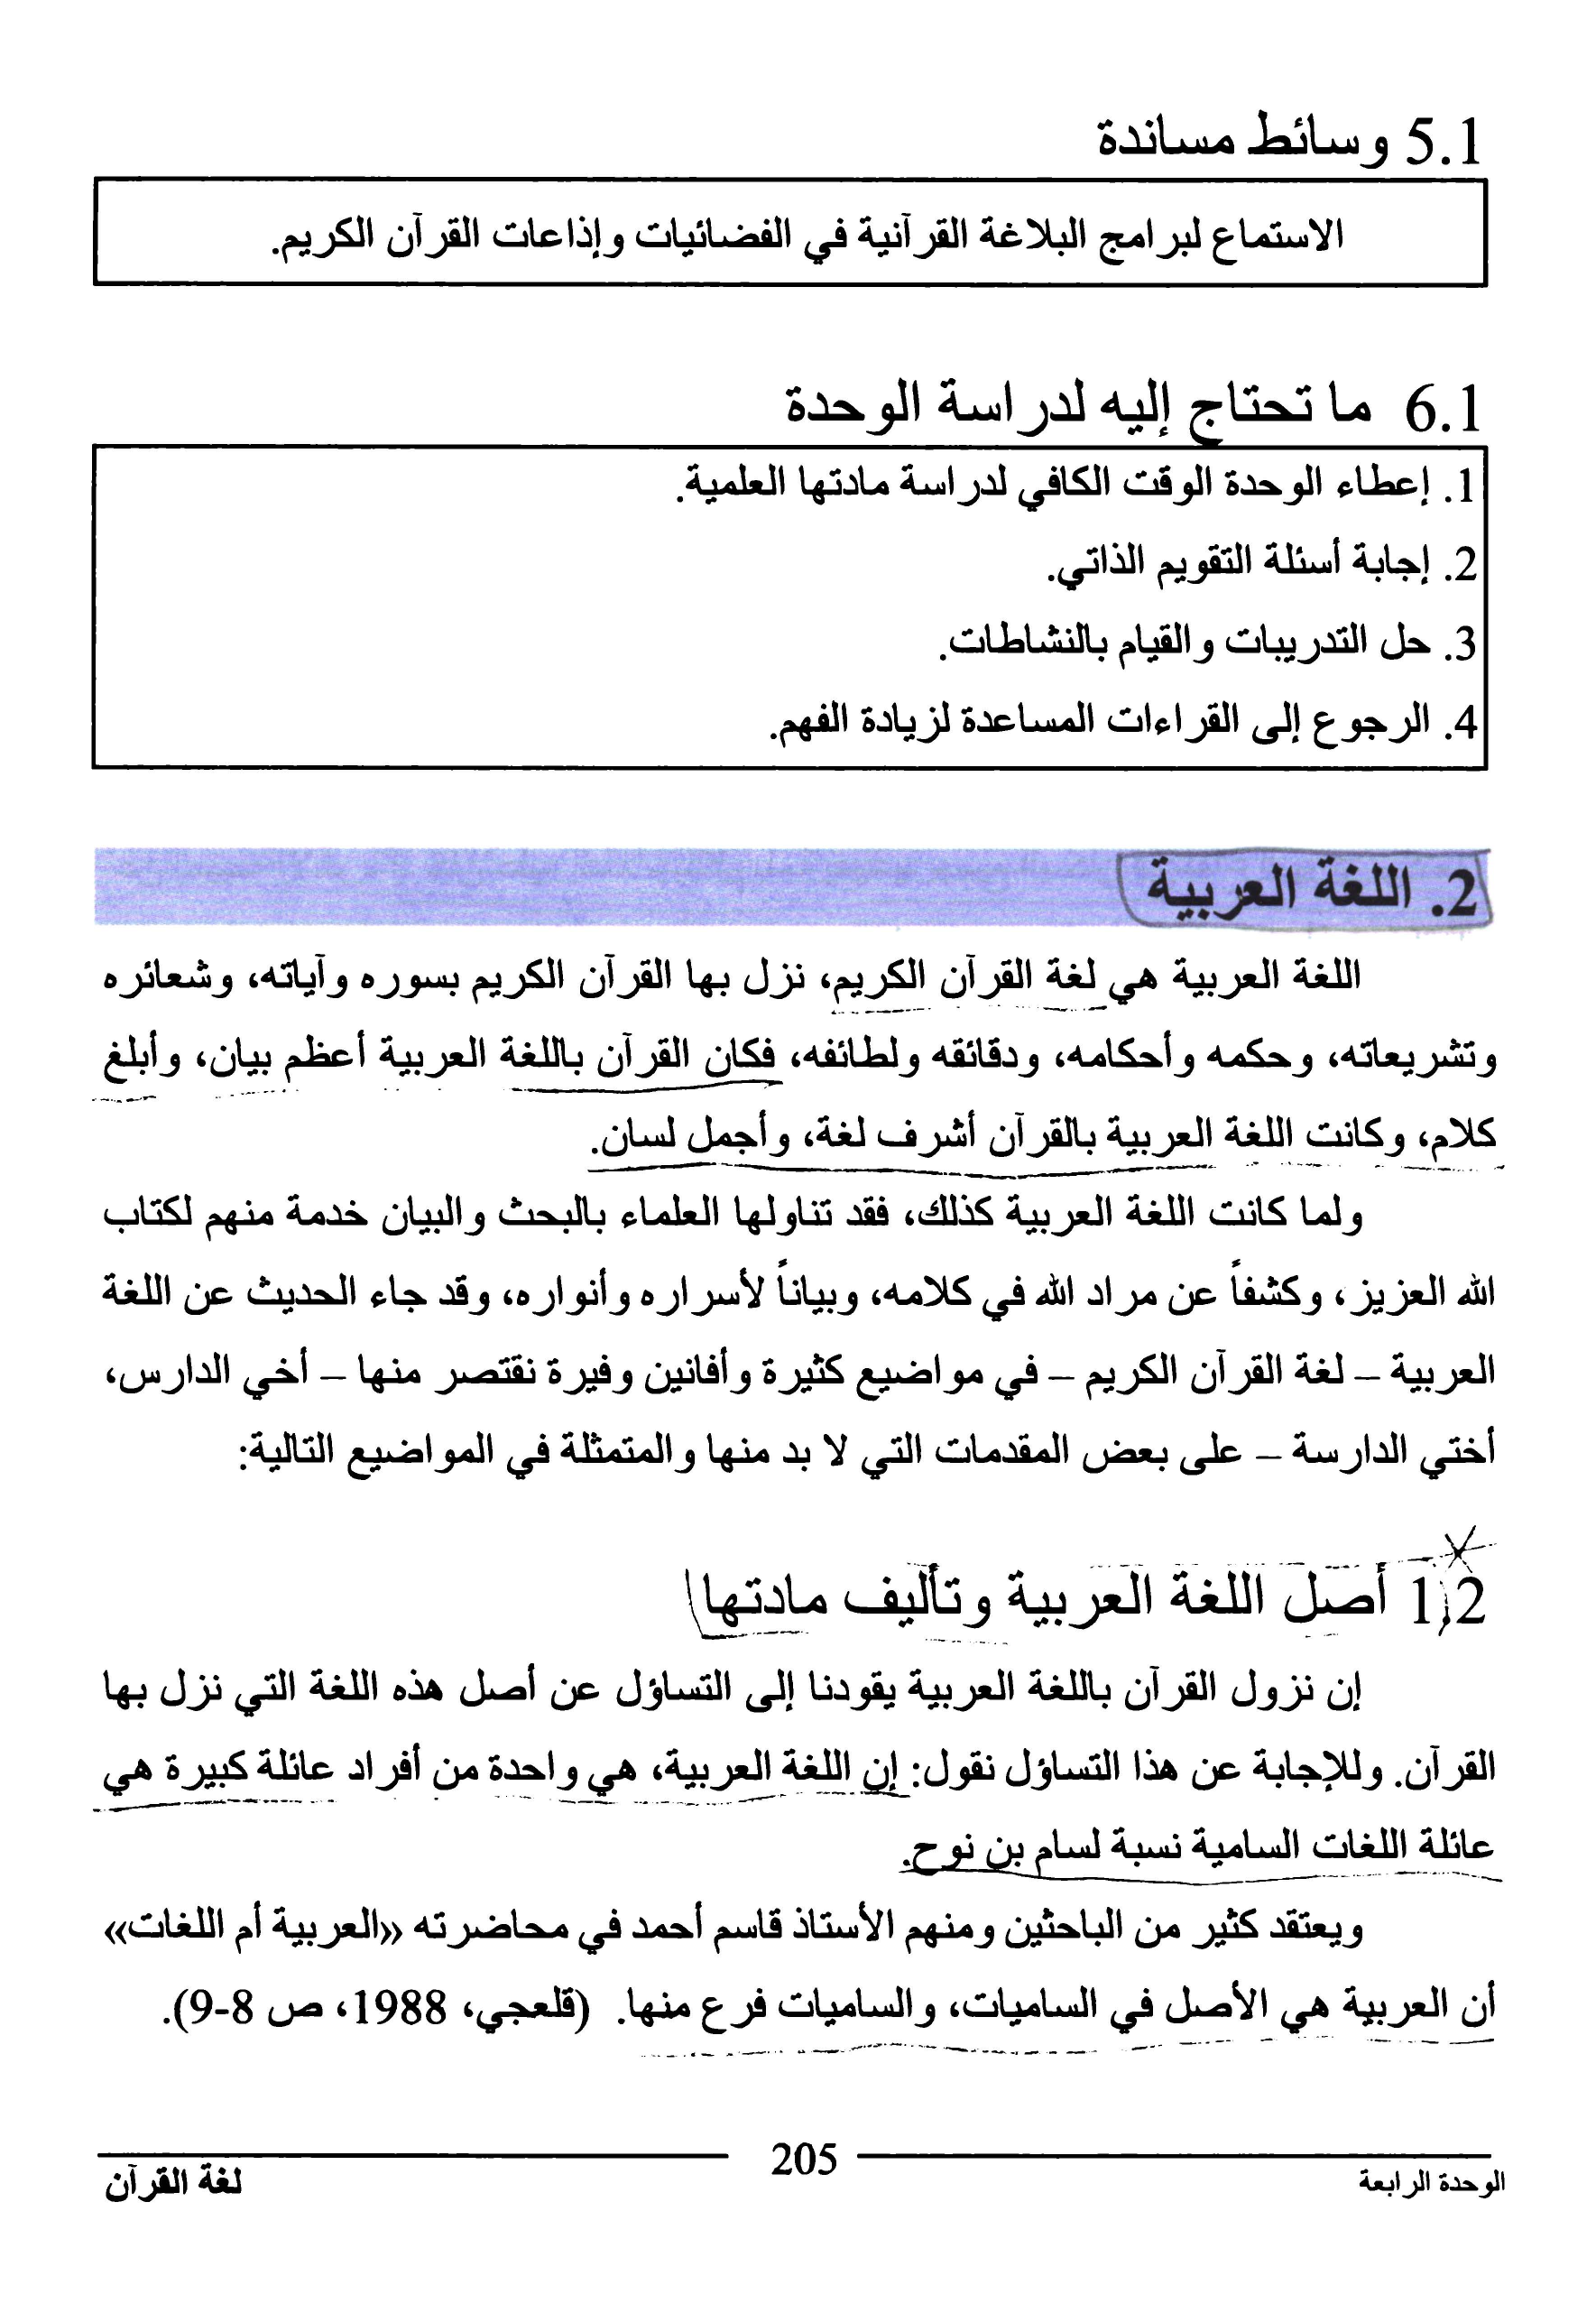 5.1 وسائط مساندة
الاستماع لبرامج البلاغة القرآنية في الفضائيات وإذاعات القرآن الكريم.
6.1 ما تحتاج إليه لدراسة الوحدة
1. إعطاء الوحدة الوقت الكافي لدراسة مادتها العلمية.
2. إجابة أسئلة التقويم الذاتي.
3. حل التدريبات والقيام بالنشاطات.
4. الرجوع إلى القراءات المساعدة لزيادة الفهم.
2. اللغة العربية
اللغة العربية هي لغة القرآن الكريم، نزل بها القرآن الكريم بسوره وآياته، وشعائره
وتشريعاته، وحكمه وأحكامه، ودقائقه ولطائفه، فكان القرآن باللغة العربية أعظم بيان، وأبلغ
كلام، وكانت اللغة العربية بالقرآن أشرف لغة، وأجمل لسان.
ولما كانت اللغة العربية كذلك، فقد تناولها العلماء بالبحث والبيان خدمة منهم لكتاب
الله العزيز، وكشفاً عن مراد الله في كلامه، وبياناً لأسراره وأنواره، وقد جاء الحديث عن اللغة
العربية – لغة القرآن الكريم – في مواضيع كثيرة وأفانين وفيرة نقتصر منها – أخي الدارس،
أختي الدارسة – على بعض المقدمات التي لا بد منها والمتمثلة في المواضيع التالية:
1.2 أصل اللغة العربية وتأليف مادتها
إن نزول القرآن باللغة العربية يقودنا إلى التساؤل عن أصل هذه اللغة التي نزل بها
القرآن. وللإجابة عن هذا التساؤل نقول: إن اللغة العربية، هي واحدة من أفراد عائلة كبيرة هي
عائلة اللغات السامية نسبة لسام بن نوح.
ويعتقد كثير من الباحثين ومنهم الأستاذ قاسم أحمد في محاضرته «العربية أم اللغات»
أن العربية هي الأصل في الساميات، والساميات فرع منها. (قلعجي، 1988، ص 8-9).
205
الوحدة الرابعة
لغة القرآن